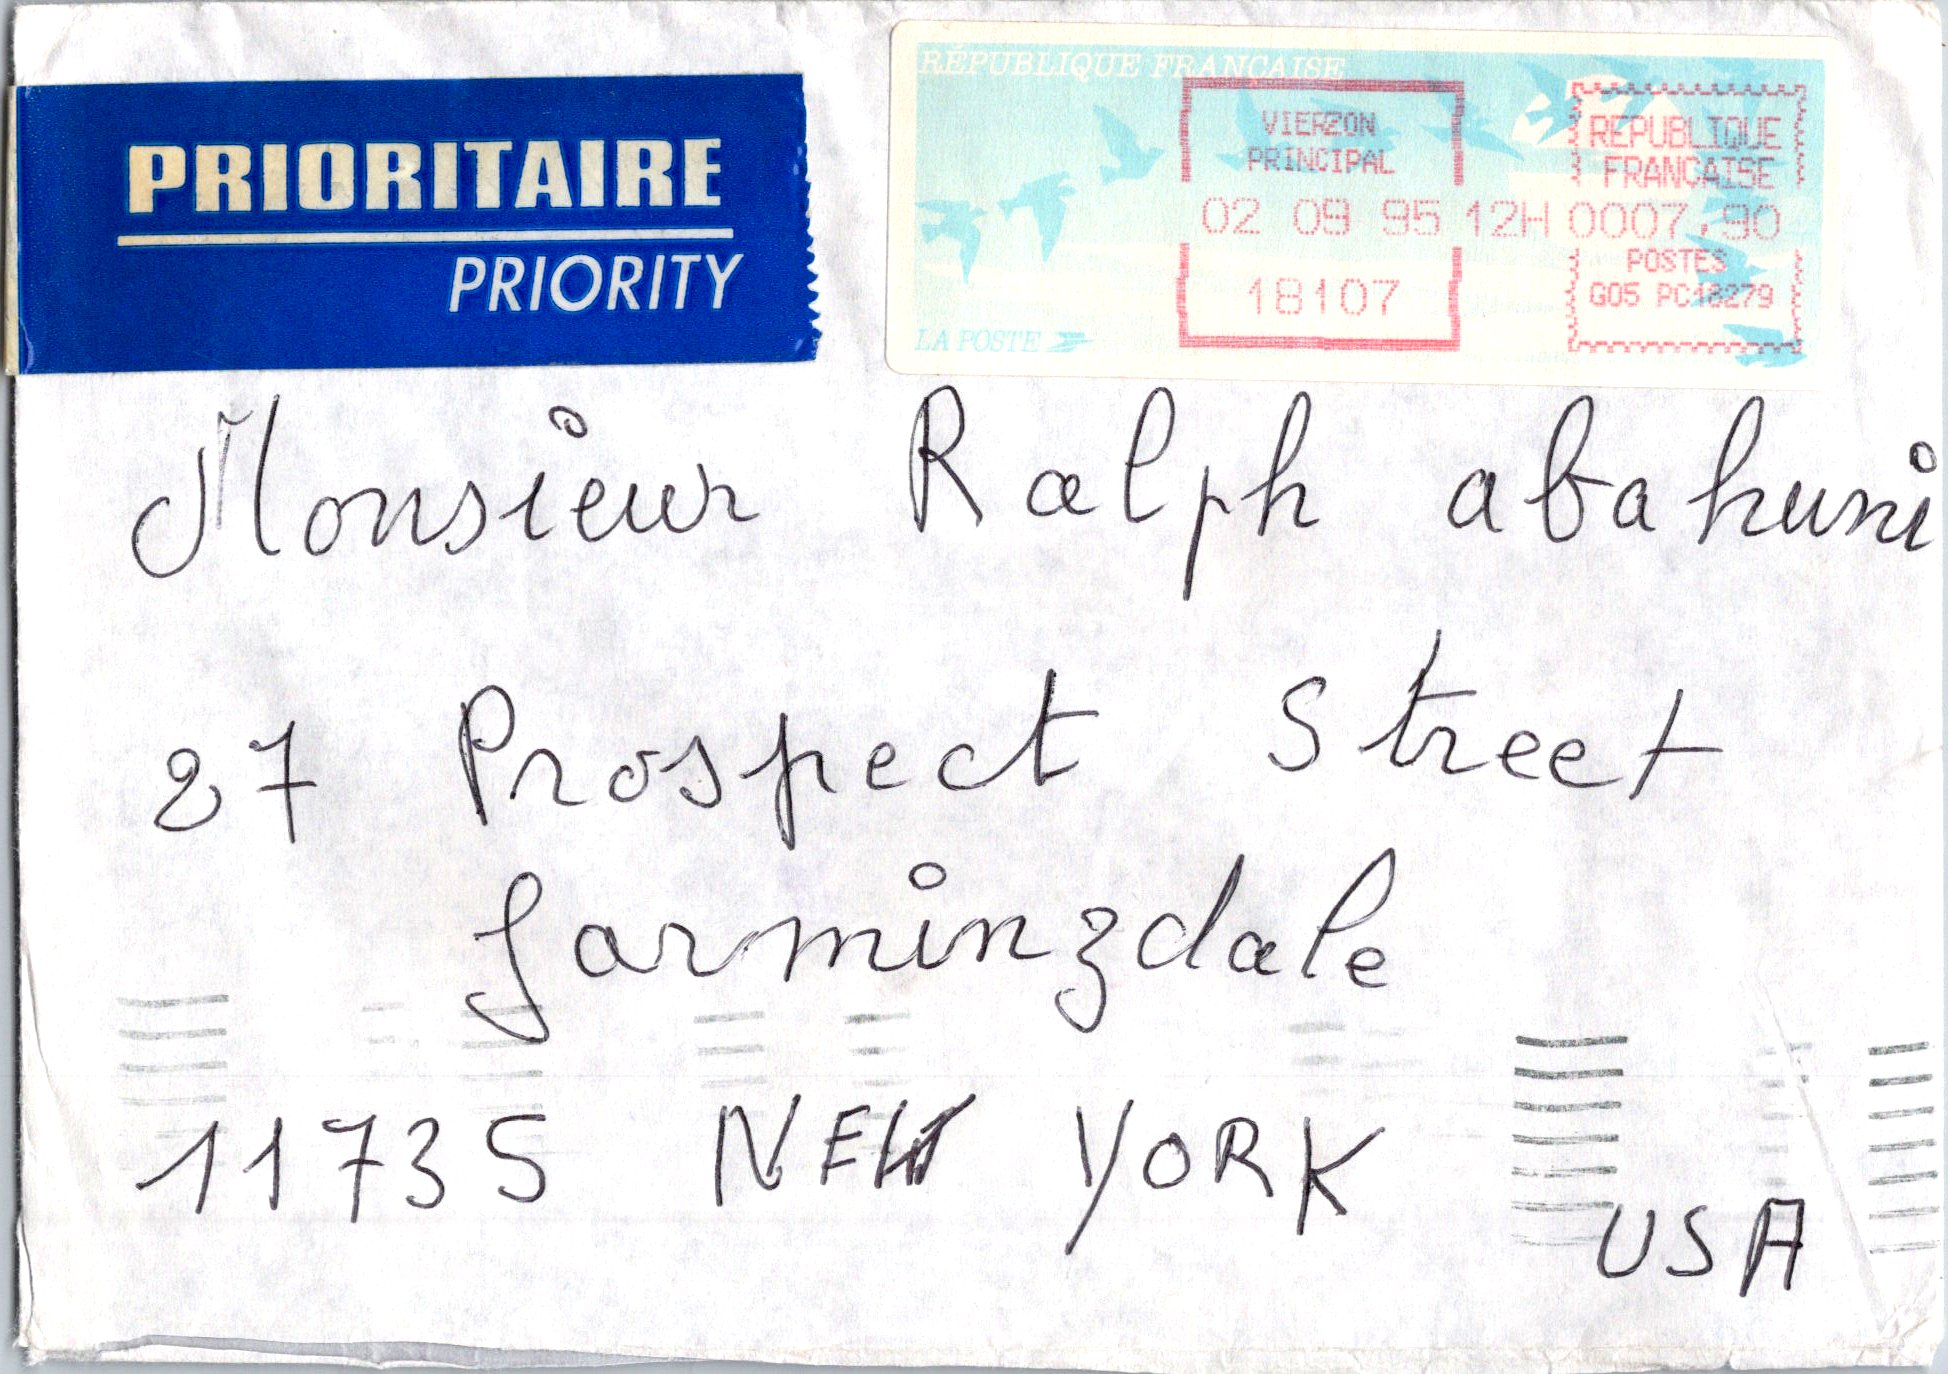 PRIORITAIRE
PRIORITY
RÉPUBLIQUE FRANÇAISE
VIERZON
PRINCIPAL
02 09 95 12H
18107
REPUBLIQUE
FRANCAISE
0007,90
POSTES
G05 PC18279
LA POSTE
Monsieur Ralph abahuni
27 Prospect Street
farminzdale
11735 NEW YORK
USA